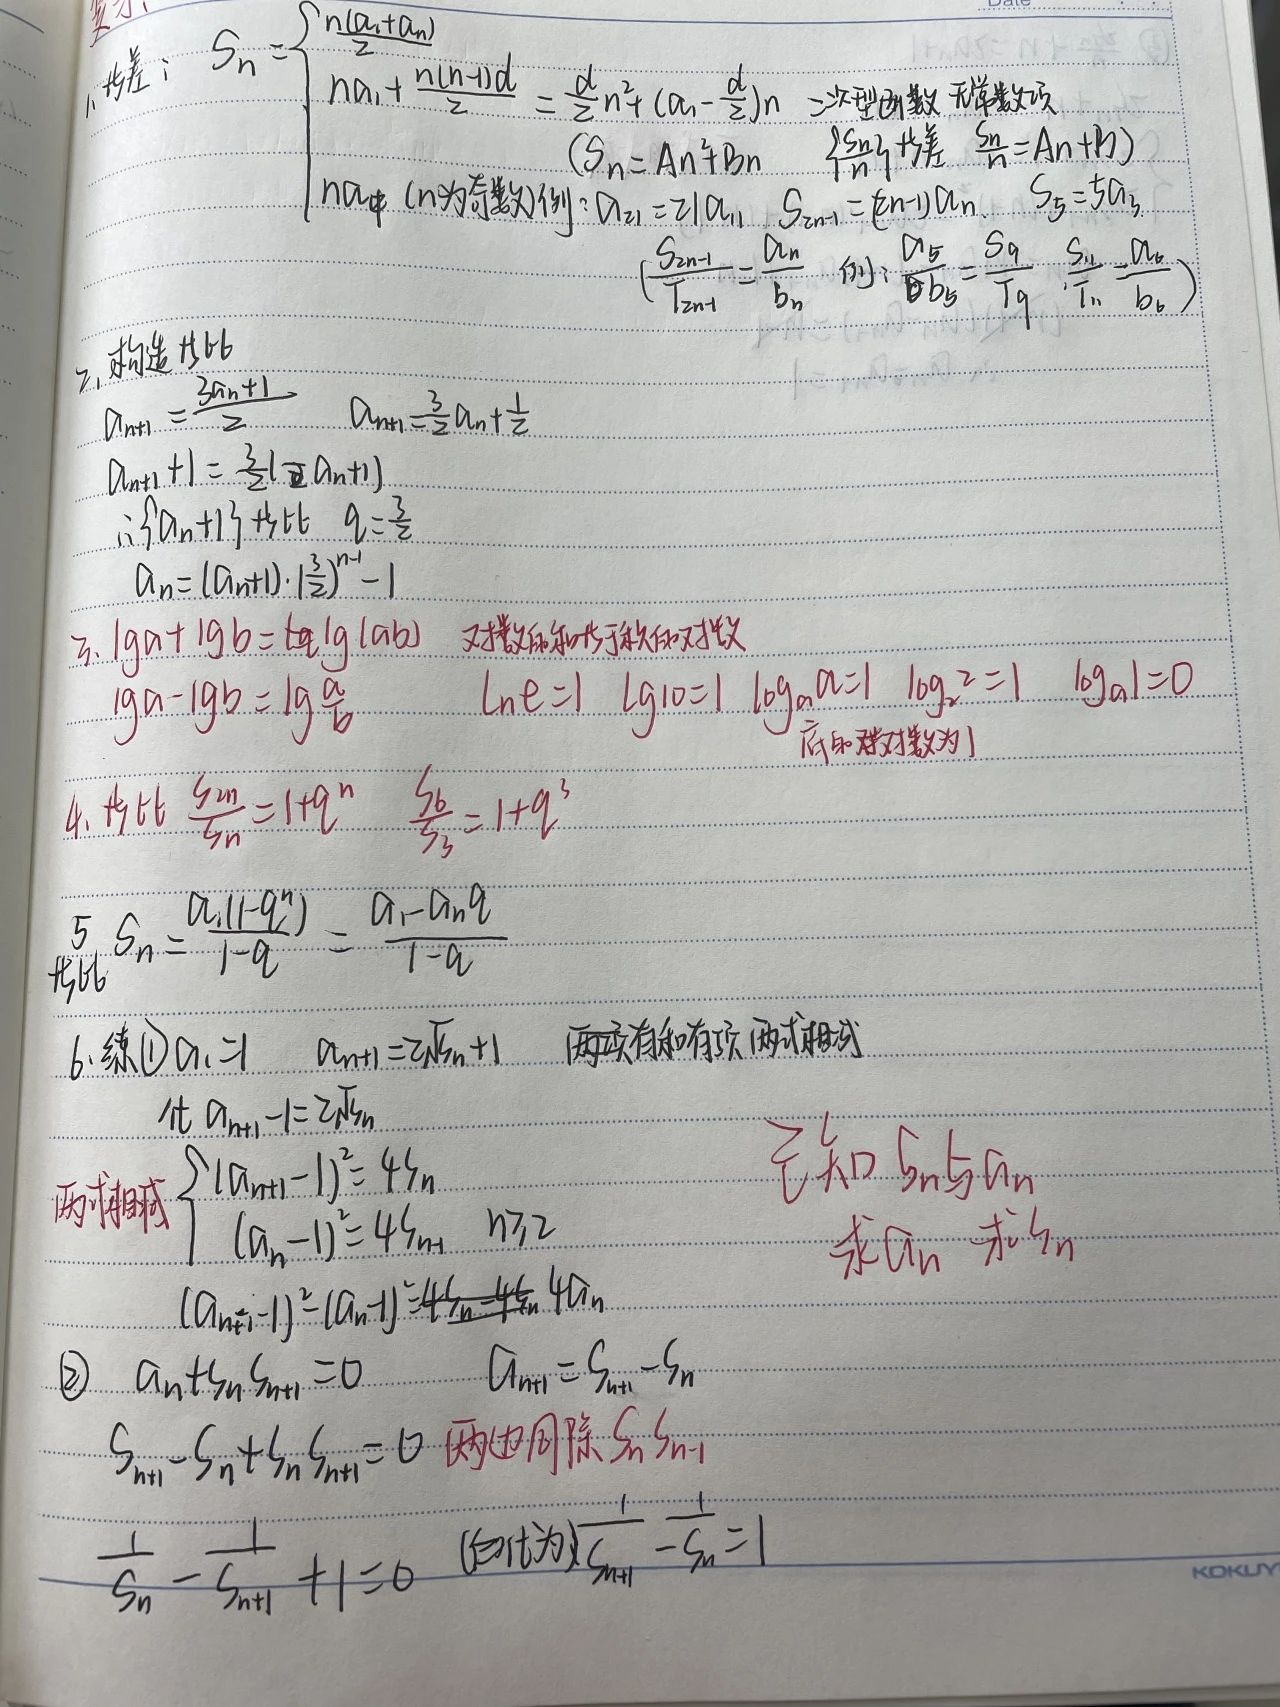 复习:
Date
1. 等差: Sn = { n(a₁+an)/2
na₁ + n(n-1)d/2 = d/2 n² + (a₁ - d/2)n 二次型函数 无常数项
(Sn = An²+Bn {Sn/n}等差 Sn/n = An+B)
na中 (n为奇数) 例: a₂₁ = 21a₁₁ S₂n-₁ = (2n-1)an. S₅ = 5a₃
(S₂n-₁/T₂n-₁ = an/bn 例: a₅/b₅ = S₉/T₉ S₁₁/T₁₁ = a₆/b₆)
2. 构造等比
an+₁ = (3an+1)/2 an+₁ = 3/2 an + 1/2
an+₁ + 1 = 3/2(an+1)
∴{an+1}等比 q = 3/2
an = (an+1)·(3/2)ⁿ⁻¹ - 1
3. lga + lgb = lg(ab) 对数的和等于积的对数
lga - lgb = lg a/b lne=1 lg10=1 logₐa=1 log₂2=1 logₐ1=0
底的对数为1
4. 等比 S₂n/Sn = 1+qⁿ S₆/S₃ = 1+q³
5 等比 Sn = a₁(1-qⁿ)/(1-q) = (a₁-anq)/(1-q)
6. 练① a₁=1 an+₁ = 2√Sn + 1 两项有和有项 两式相减
化 an+₁ - 1 = 2√Sn
两式相减 { (an+₁ - 1)² = 4Sn
(an - 1)² = 4Sn-₁ n≥2
已知Sn与an
求an 求Sn
(an+₁ - 1)² - (an - 1)² = 4an
② an + SnSn+₁ = 0 an+₁ = Sn+₁ - Sn
Sn+₁ - Sn + SnSn+₁ = 0 两边同除 SnSn-₁
1/Sn - 1/Sn+₁ + 1 = 0 (可化为) 1/Sn+₁ - 1/Sn = 1
KOKUY